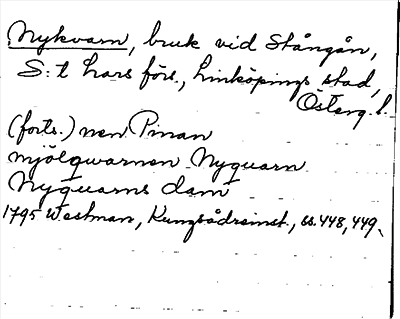 Nykvarn, bruk vid Stångån,
S:t Lars förs., Linköpings stad,
Österg. l.
(forts.) nen Pinan
mjölqwarnen Nyquarn
Nyquarns dam
1795 Westman, Kungsådreinst., ss. 448, 449.